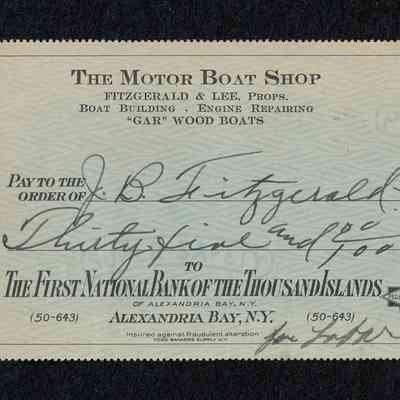 THE MOTOR BOAT SHOP
FITZGERALD & LEE, PROPS.
BOAT BUILDING . ENGINE REPAIRING
"GAR" WOOD BOATS
PAY TO THE
ORDER OF J. B. Fitzgerald
Thirty five and 00/100
TO
THE FIRST NATIONAL BANK OF THE THOUSAND ISLANDS
OF ALEXANDRIA BAY, N.Y.
(50-643) ALEXANDRIA BAY, N.Y. (50-643)
Insured against fraudulent alteration
TODD BANKERS SUPPLY N.Y.
for Labor